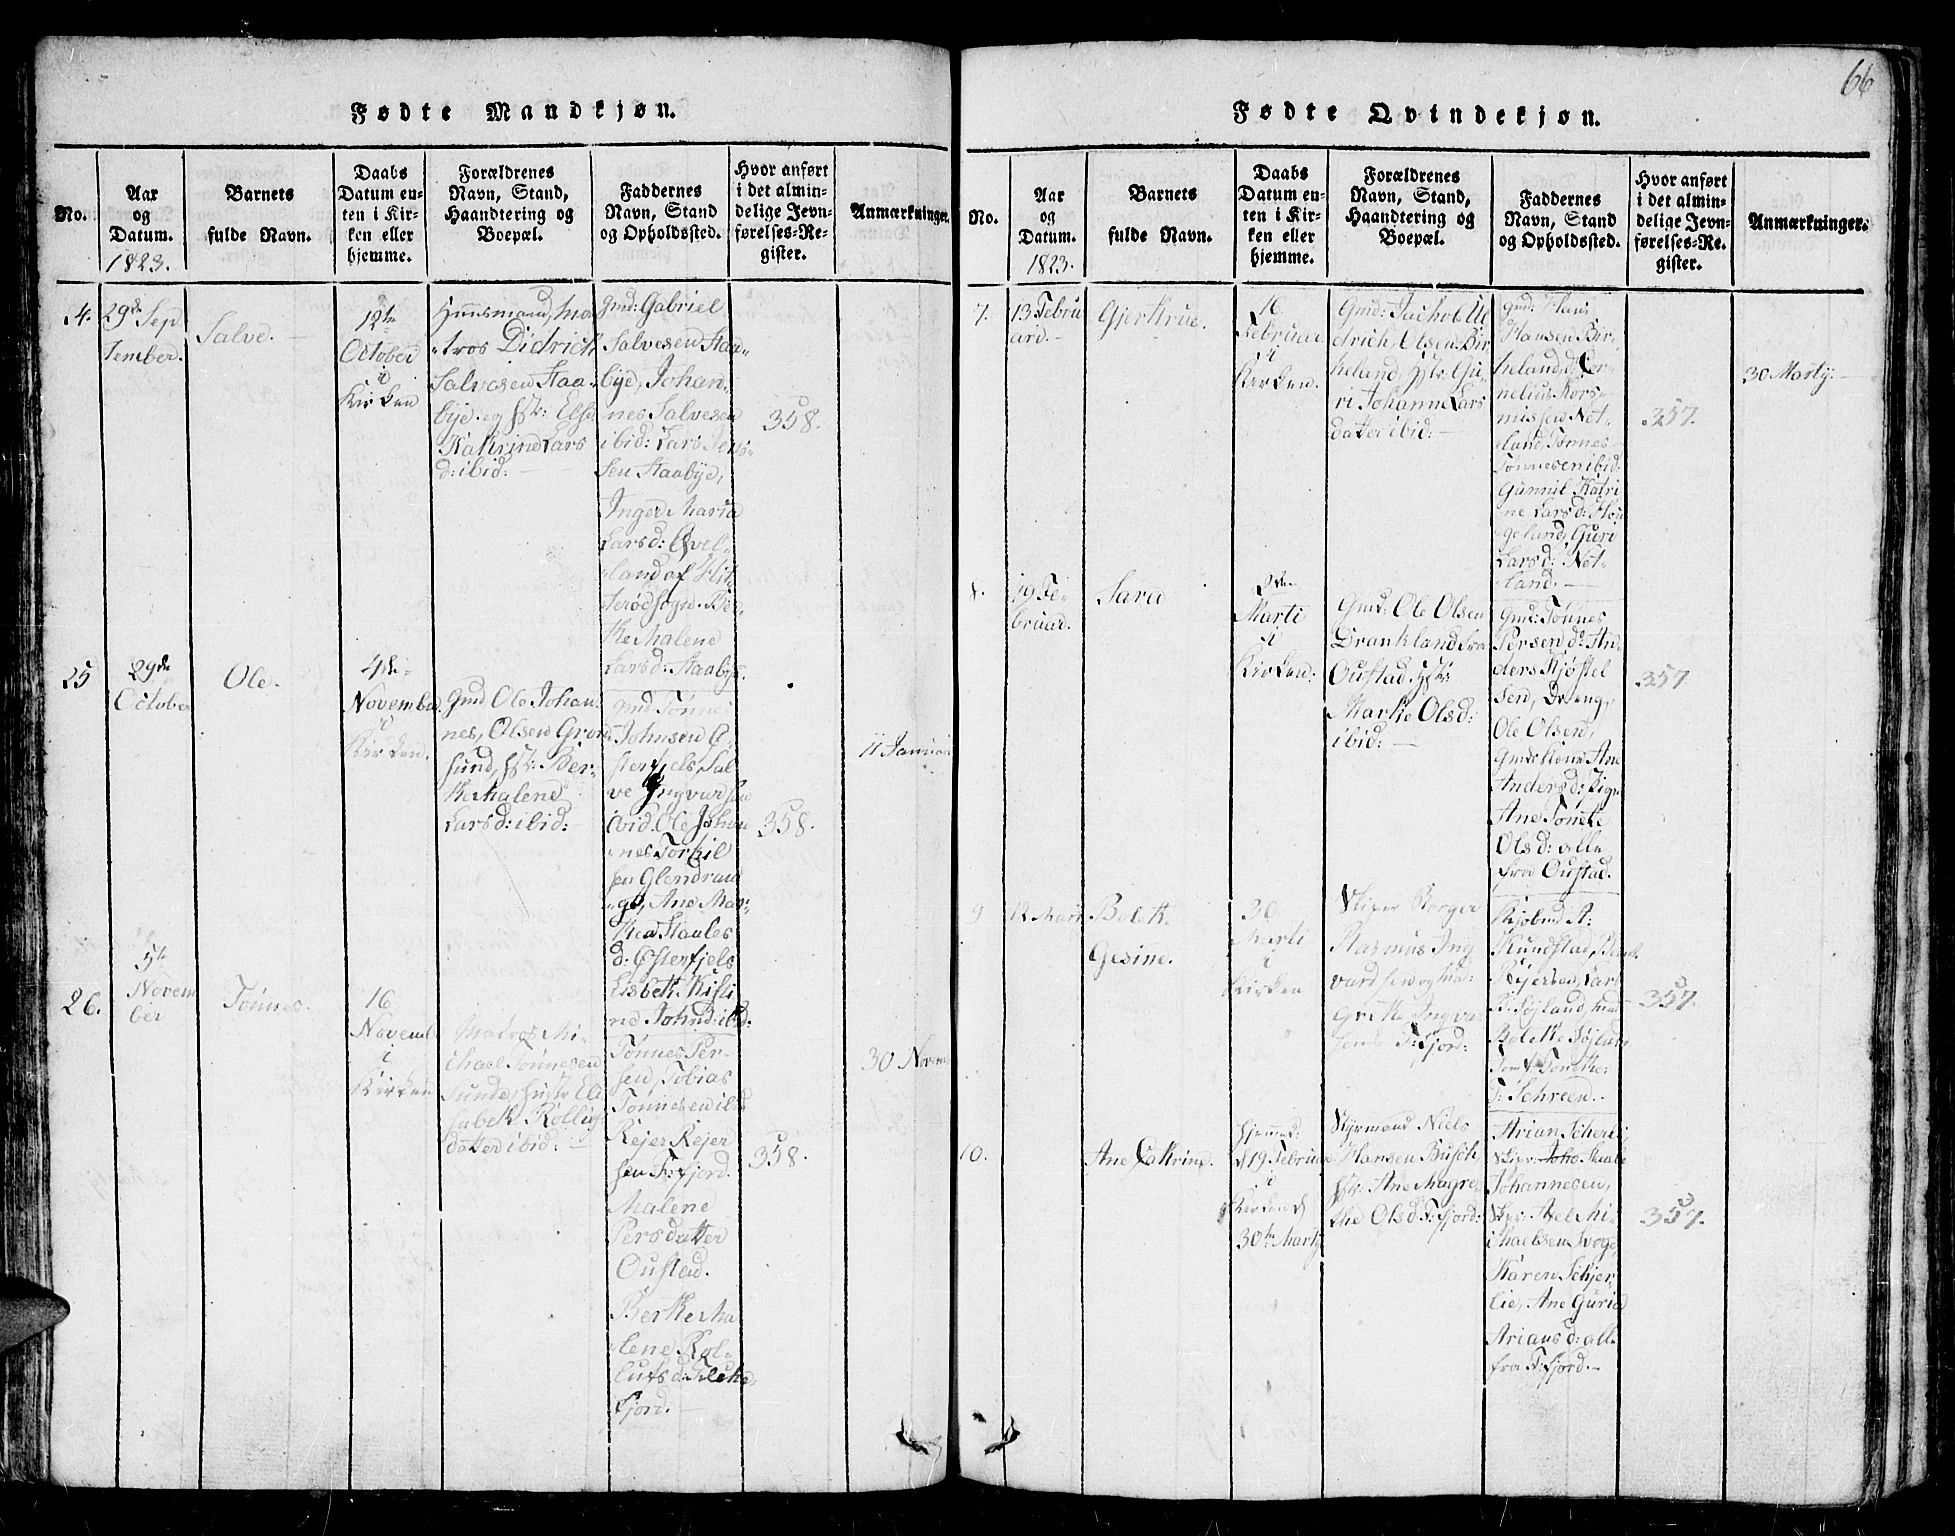 66
Fødte Mandkjøn.
No.
Aar
og
Datum.
1823.
Barnets
fulde Navn.
Daabs
Datum en-
ten i Kir-
ken eller
hjemme.
Forældrenes
Navn, Stand,
Haandtering og
Boepæl.
Faddernes
Navn, Stand
og Opholdssted.
Hvor anført
i det almin-
delige Jevn-
førelses-Re-
gister.
Anmærkninger.
29de Sep
tember.
Salve.
12te
October
i
Kirken
Huusmand, Ma
tros Didrich
Salvesen Staa-
bye og hstr: Else
Kathrine Lars
d: ibid:
Gmd: Gabriel
Salvesen Staa-
bye, Johan-
nes Salvesen
ibid: Lars Jens-
sen Staabye,
Inger Maria
Larsd: Qvel-
land af Hit-
terødsogn. Ber-
the Malene
Larsd: Staabye.
358.
25
29de
October
Ole.
4de
November
i
Kirken.
Gmd Ole Johan
nes, Olsen Grom-
sund, hstr: Ber-
the Malene
Larsd: ibid:
Gmd Tønnes
Johnsen Ø-
sterfjels, Sal
ve Ingvardsen
ibid. Ole Johan
nes Torkil
sen Glendran
ge, Ane Mar-
thea Staales
d: Østerfjels
Lisbeth Kisti
ne Johnd: ibd.
358.
11 Januar
26.
5te
Novem
ber
Tønnes.
16
Novemb
i
Kirken
Matros Mi-
chael Tønnesen
Sunde, hustr Eli
sabeth Rollufs
datter ibid:
Tønnes Per-
sen, Tobias
Tønnesen ibd
Rejer Rejer
sen F:fjord.
Malene
Persdatter
Oustad.
Berthe Ma
lene Rol-
lufsd: Flekke
fjord.
358.
30 Novem
Fødte Qvindekjøn.
No.
Aar
og
Datum.
1823.
Barnets
fulde Navn.
Daabs
Datum en-
ten i Kir-
ken eller
hjemme.
Forældrenes
Navn, Stand,
Haandtering og
Boepæl.
Faddernes
Navn, Stand
og Opholdssted.
Hvor anført
i det almin-
delige Jevn-
førelses-Re-
gister.
Anmærkninger.
7.
13 Febru
ard.
Gjertrue.
16
Februar
i
Kirken.
Gmd: Jachob Di
drich, Olsen Bir
keland, hstr: Gu-
ri Johanne Lars
datter ibid:
Gmd: Hans
Hansen Bir-
keland, Cor-
nelius Rors-
missen Net-
land, Tønnes
Tønnesen ibid:
Gunnil Katri
ne Larsd: Hou
geland, Guri
Larsd: Net-
land.
357.
30 Martj:
8.
19 Fe-
bruad.
Sara
2den
Marti
i
Kirken:
Gmd: Ole Olsen
Drankland fra
Oustad, hstr:
Marthe Olsd:
ibid:
Gmd: Tønnes
Persen do: An-
ders Kjøstel
sen, Dreng,
Ole Olsen,
Gmds Kone Ane
Andersd: Pige
Ane Tonete
Olsd: alle
fra Oustad.
357
9
12 Mart
Bolethe
Gesine.
30
Marti
i
Kirken
Skiper Borger
Rasmus Ing
vardsen og Ma-
Grethe Ingvar
sens F:fjord:
Kjøbmd A:
Kundstad,
Rejersen, Lars
B. Søjland, mad
Bolethe Søjland
Jomf Tonethe
T: Schreen.
357.
10.
Ane Cathrine.
Hjemmed:
d 19 Februar
i
Kirken d
30te Martj
Styrmand Niels
Hansen Busch,
hstr: Ane Magre-
the Olsd F:fjord:
Arian Scherli,
Skipr: Staale
Johannesen,
Skpr: Axel Mi-
chaelsen Woge
Karen Schjer
lie, Ane Guria
Ariansd: alle
fra F:fjord.
357.